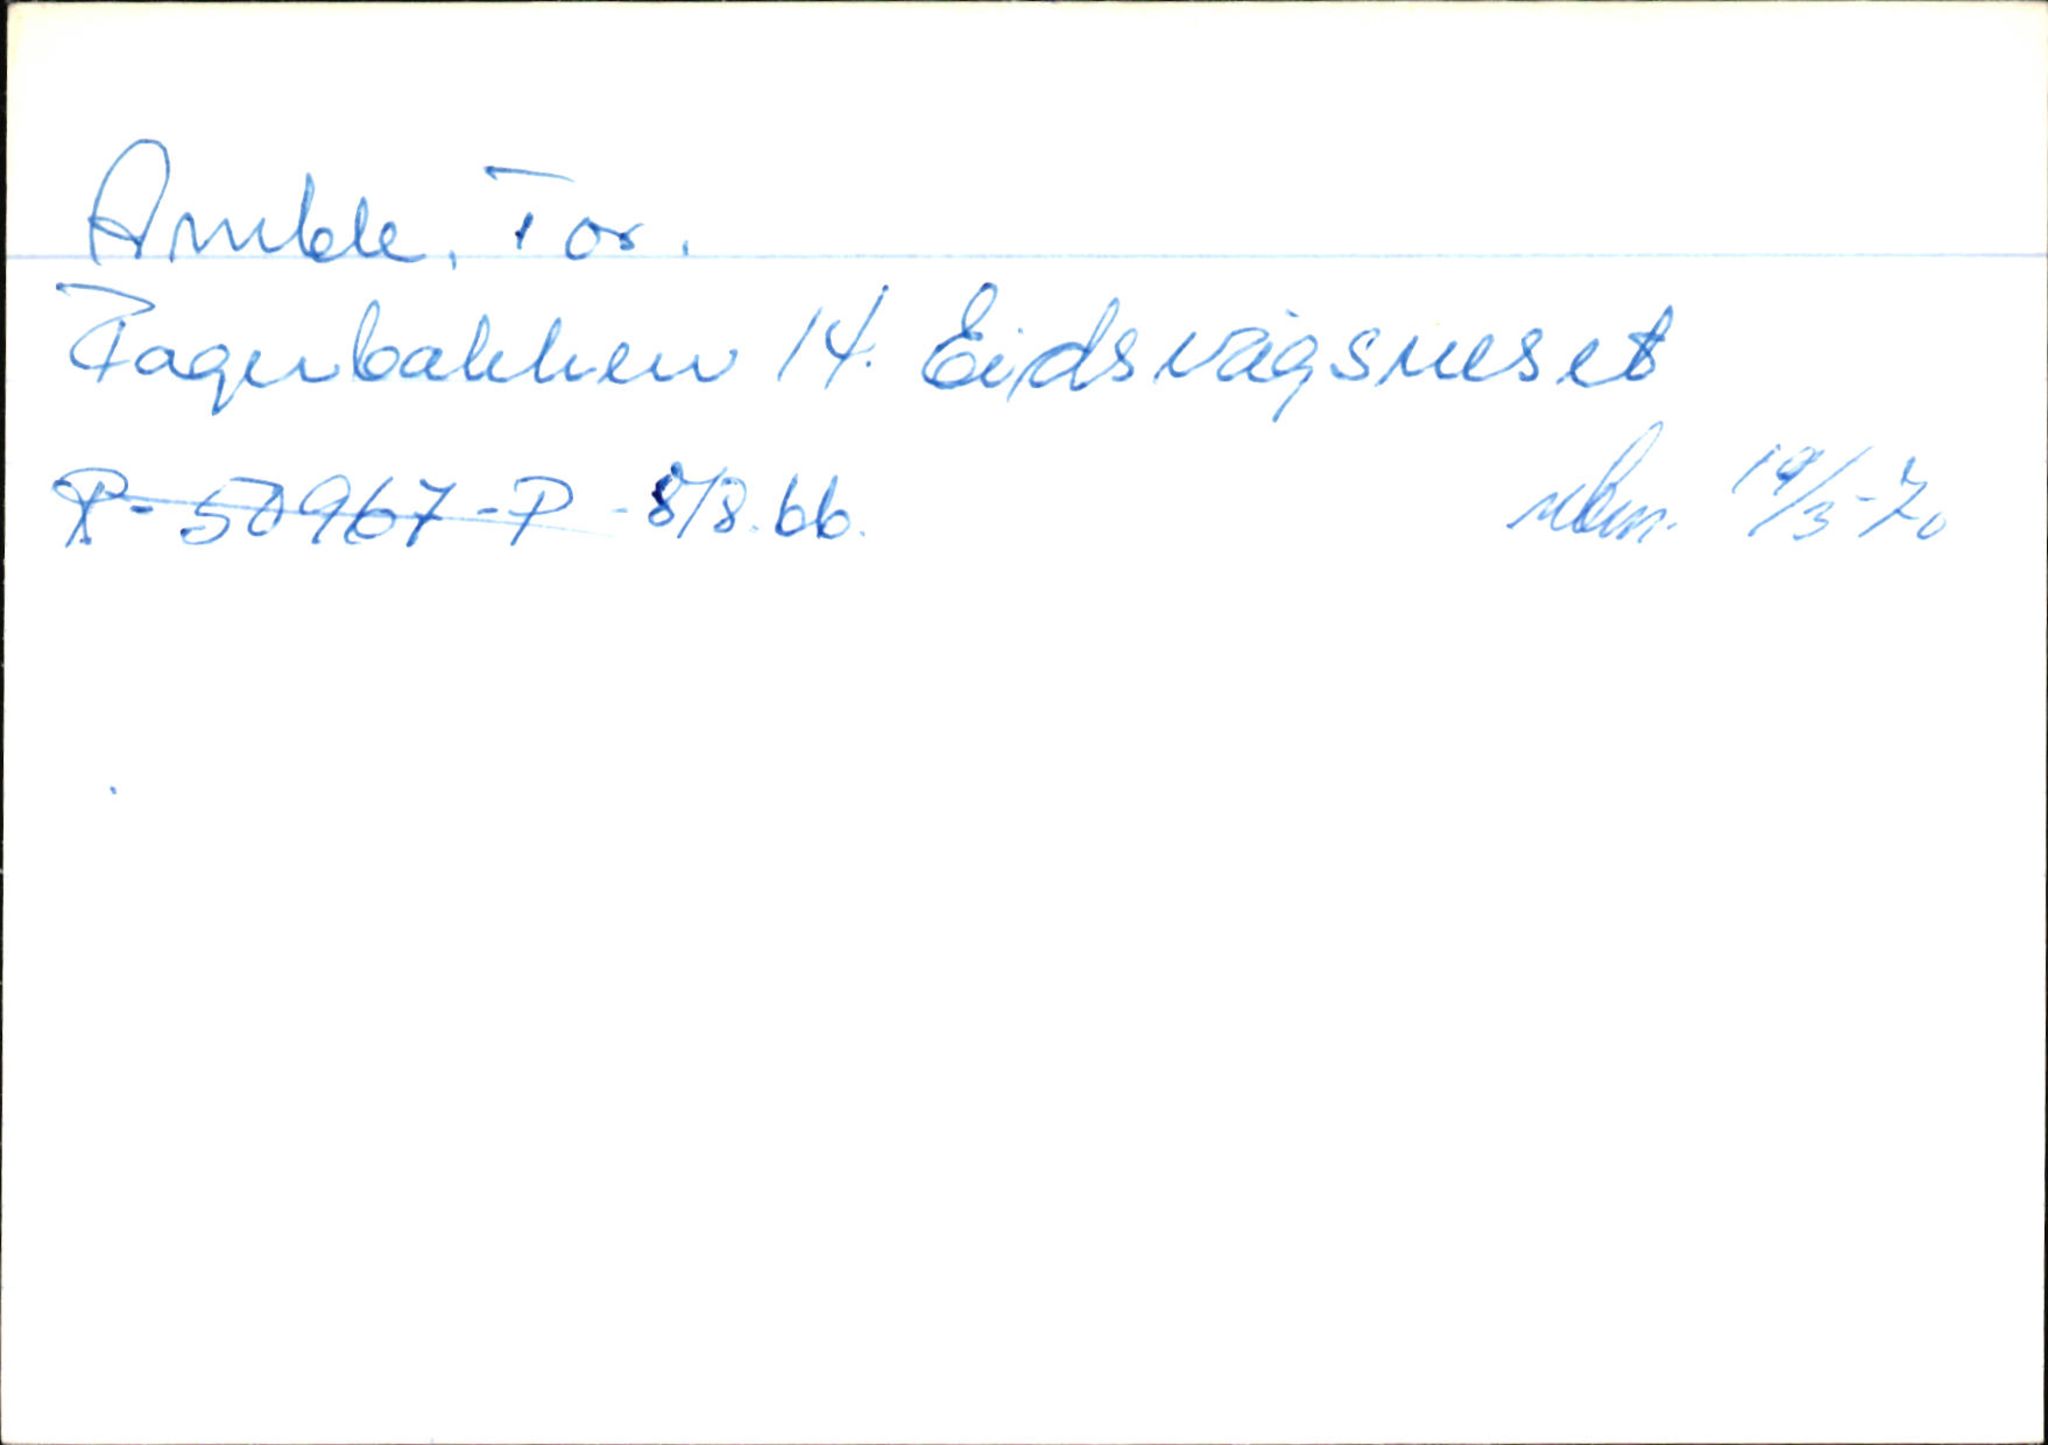 Amble, Tor.
Fagerbakken 14. Eidsvågsneset
R-50967-P - 8/8.66. ubm. 19/3-70